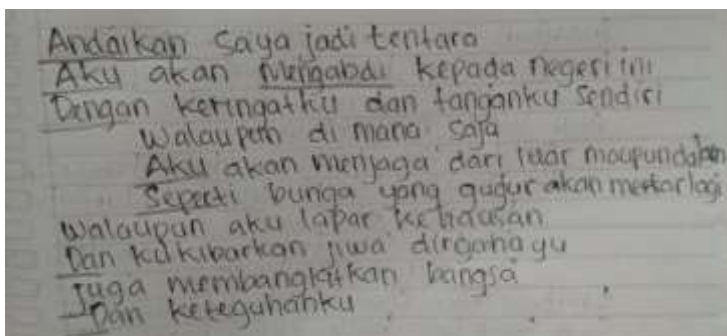 Andaikan saya jadi tentara
Aku akan Mengabdi kepada negeri ini
Dengan keringatku dan tanganku sendiri
Walaupun di mana saja
Aku akan menjaga dari luar maupundalam
Seperti bunga yang gugur akan mekar lagi
Walaupun aku lapar kehausan
Dan kukibarkan jiwa dirgahayu
Juga membangkitkan bangsa
Dan keteguhanku